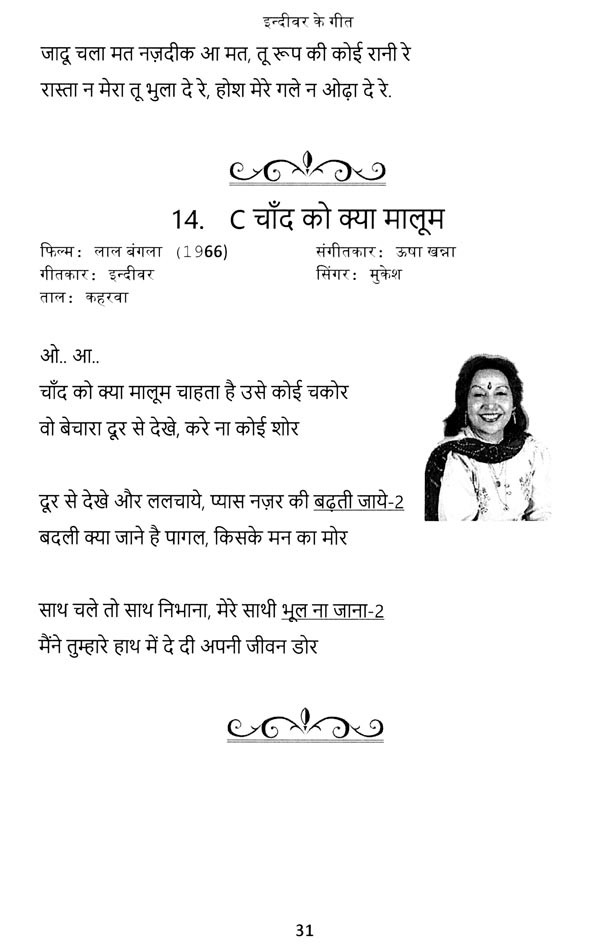 इन्दीवर के गीत
जादू चला मत नज़दीक आ मत, तू रूप की कोई रानी रे
रास्ता न मेरा तू भुला दे रे, होश मेरे गले न ओढ़ा दे रे.
14. C चाँद को क्या मालूम
फिल्म: लाल बंगला (1966) संगीतकार: ऊषा खन्ना
गीतकार: इन्दीवर सिंगर: मुकेश
ताल: कहरवा
ओ.. आ..
चाँद को क्या मालूम चाहता है उसे कोई चकोर
वो बेचारा दूर से देखे, करे ना कोई शोर
दूर से देखे और ललचाये, प्यास नज़र की बढ़ती जाये-2
बदली क्या जाने है पागल, किसके मन का मोर
साथ चले तो साथ निभाना, मेरे साथी भूल ना जाना-2
मैंने तुम्हारे हाथ में दे दी अपनी जीवन डोर
31